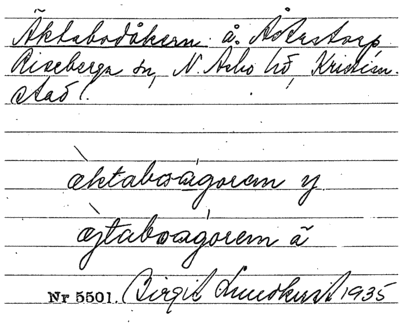 Äktabodåkern å. Åstorp,
Riseberga sn, N. Åsbo hd, Kristian-
stad l.
æ̀ktabωágorem y
æ̀jtabωágorem ã
Nr 5501. Birgit Lundkvist 1935